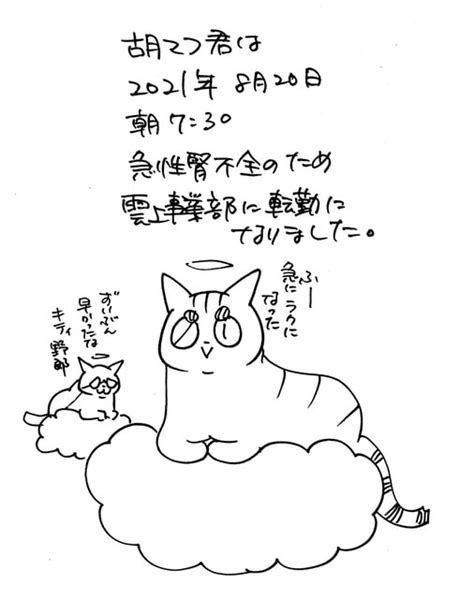 胡てつ君は
2021年 8月20日
朝 7:30
急性腎不全のため
雲上事業部に転勤に
なりました。
ふー
急にラクに
なった
ずいぶん
早かったな
キティ野郎